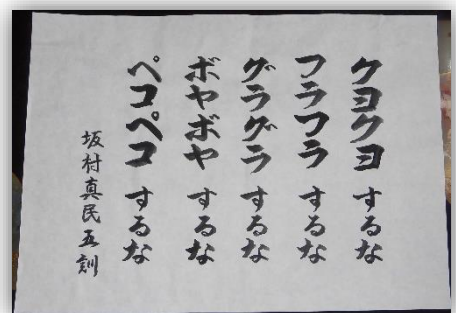 クヨクヨするな
フラフラするな
グラグラするな
ボヤボヤするな
ペコペコするな
坂村真民五訓